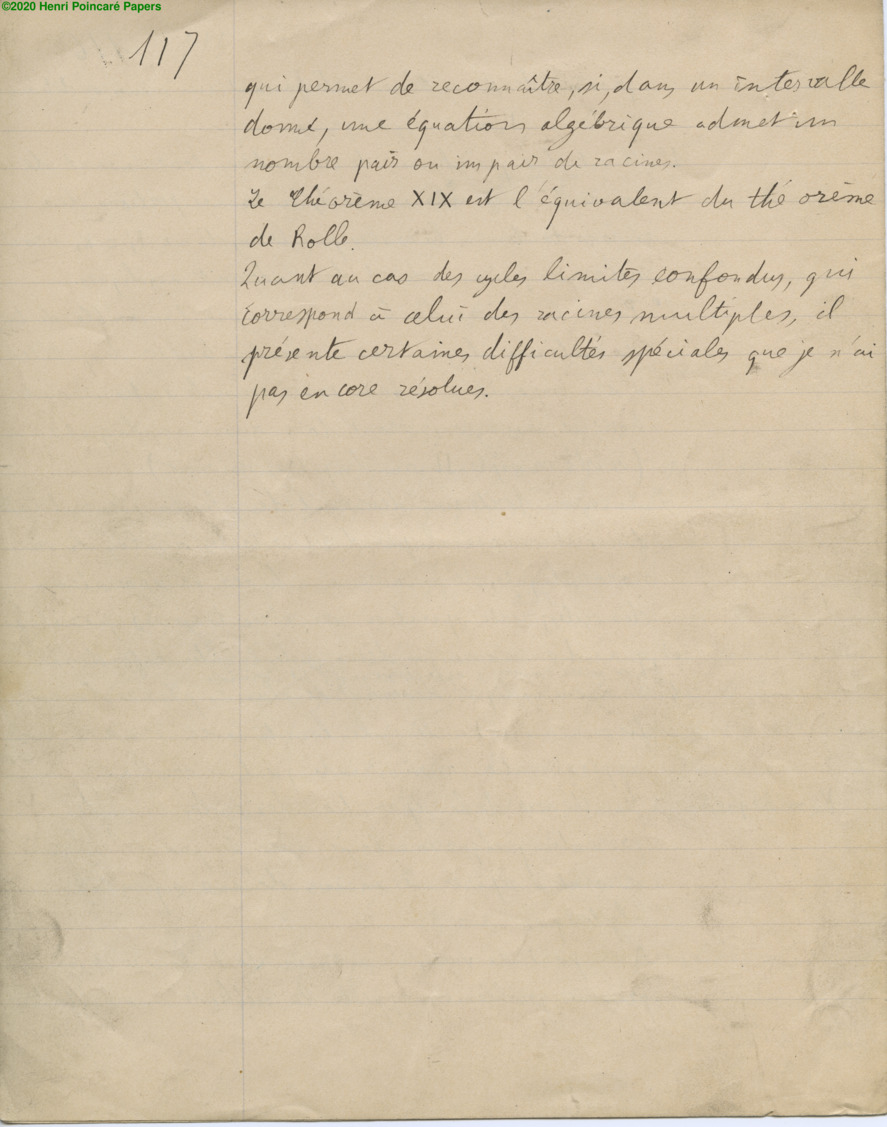 ©2020 Henri Poincaré Papers
117
qui permet de reconnaître, si, dans un intervalle
donné, une équation algébrique admet un
nombre pair ou impair de racines.
Le théorème XIX est l'équivalent du théorème
de Rolle.
Quant au cas des cycles limites confondus, qui
correspond à celui des racines multiples, il
présente certaines difficultés spéciales que je n'ai
pas encore résolues.